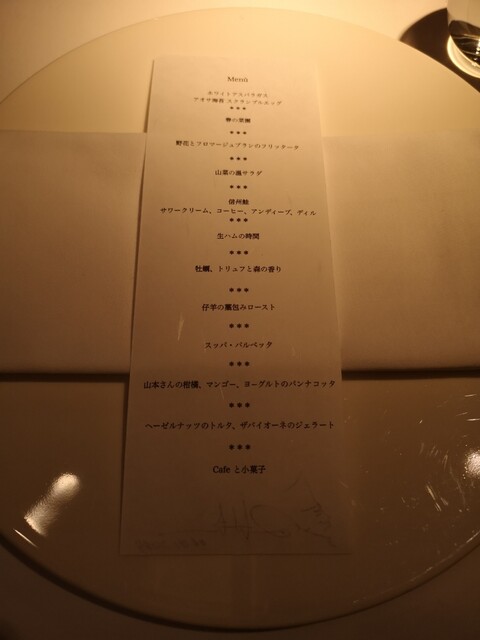 Menù
ホワイトアスパラガス
アオサ海苔 スクランブルエッグ
***
春の菜園
***
野花とフロマージュブランのフリッタータ
***
山菜の温サラダ
***
信州鮭
サワークリーム、コーヒー、アンディーブ、ディル
***
生ハムの時間
***
牡蠣、トリュフと森の香り
***
仔羊の藁包みロースト
***
スッパ・バルベッタ
***
山本さんの柑橘、マンゴー、ヨーグルトのパンナコッタ
***
ヘーゼルナッツのトルタ、ザバイオーネのジェラート
***
Cafe と小菓子